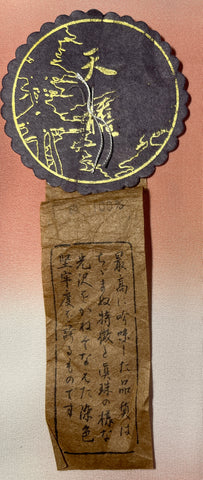 天
100%
最高に吟味した品質は
ちぢまぬ特徴と真珠の様な
光沢をかねそなえた染色
堅牢度を誇るものです